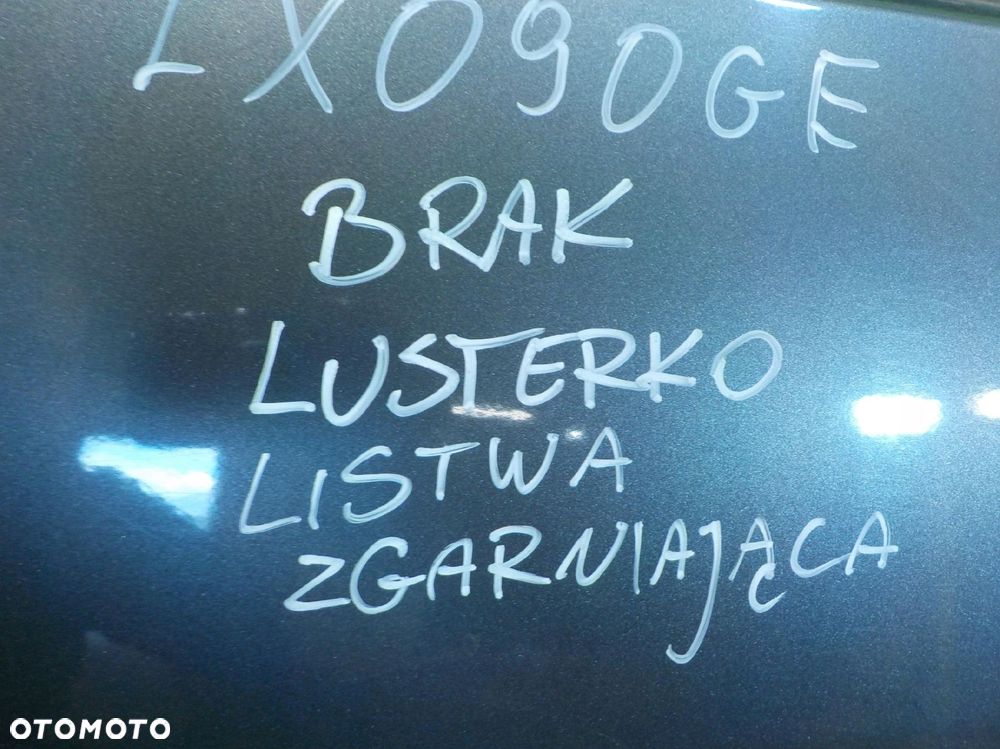 LX090GE
BRAK
LUSTERKO
LISTWA
ZGARNIAJĄCA
OTOMOTO